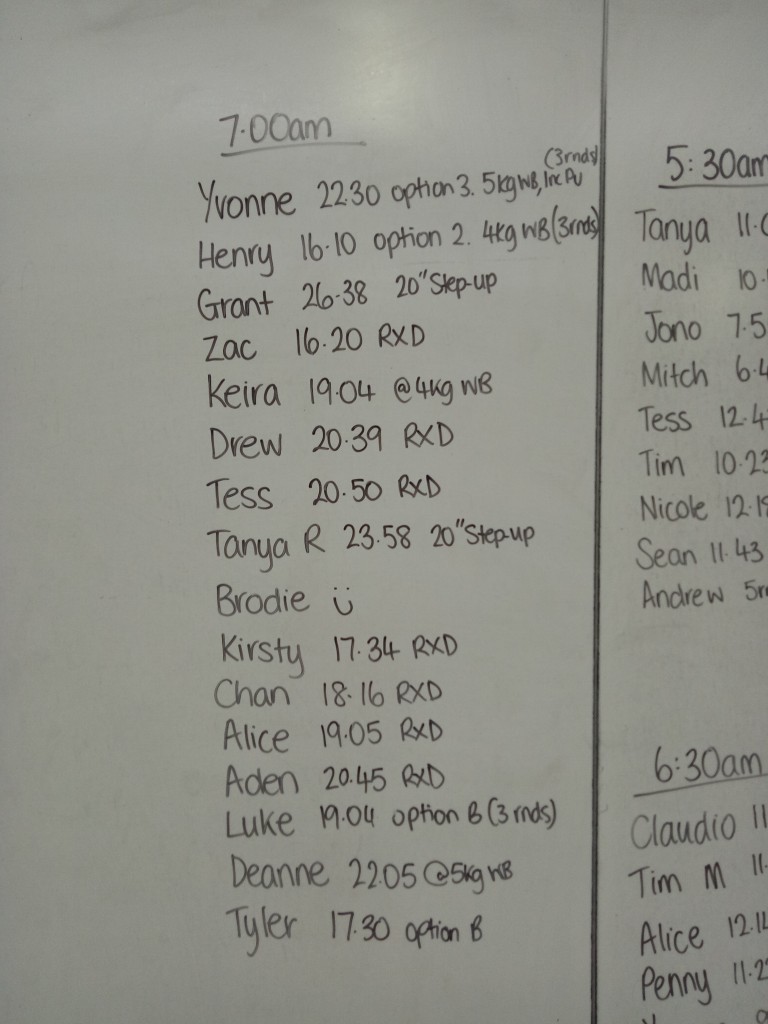 7.00am
(3rnds)
Yvonne 22.30 option 3. 5kg WB, Inc PU
Henry 16.10 option 2. 4kg WB (3rnds)
Grant 26.38 20" Step-up
Zac 16.20 RXD
Keira 19.04 @4kg WB
Drew 20.39 RXD
Tess 20.50 RXD
Tanya R 23.58 20" Step-up
Brodie
Kirsty 17.34 RXD
Chan 18.16 RXD
Alice 19.05 RXD
Aden 20.45 RXD
Luke 19.04 option B (3 rnds)
Deanne 22.05 @5kg WB
Tyler 17.30 option B
5:30am
Tanya 11.
Madi 10.
Jono 7.5
Mitch 6.4
Tess 12.4
Tim 10.23
Nicole 12.19
Sean 11.43
Andrew 5r
6:30am
Claudio 11
Tim M 11.
Alice 12.1
Penny 11.2